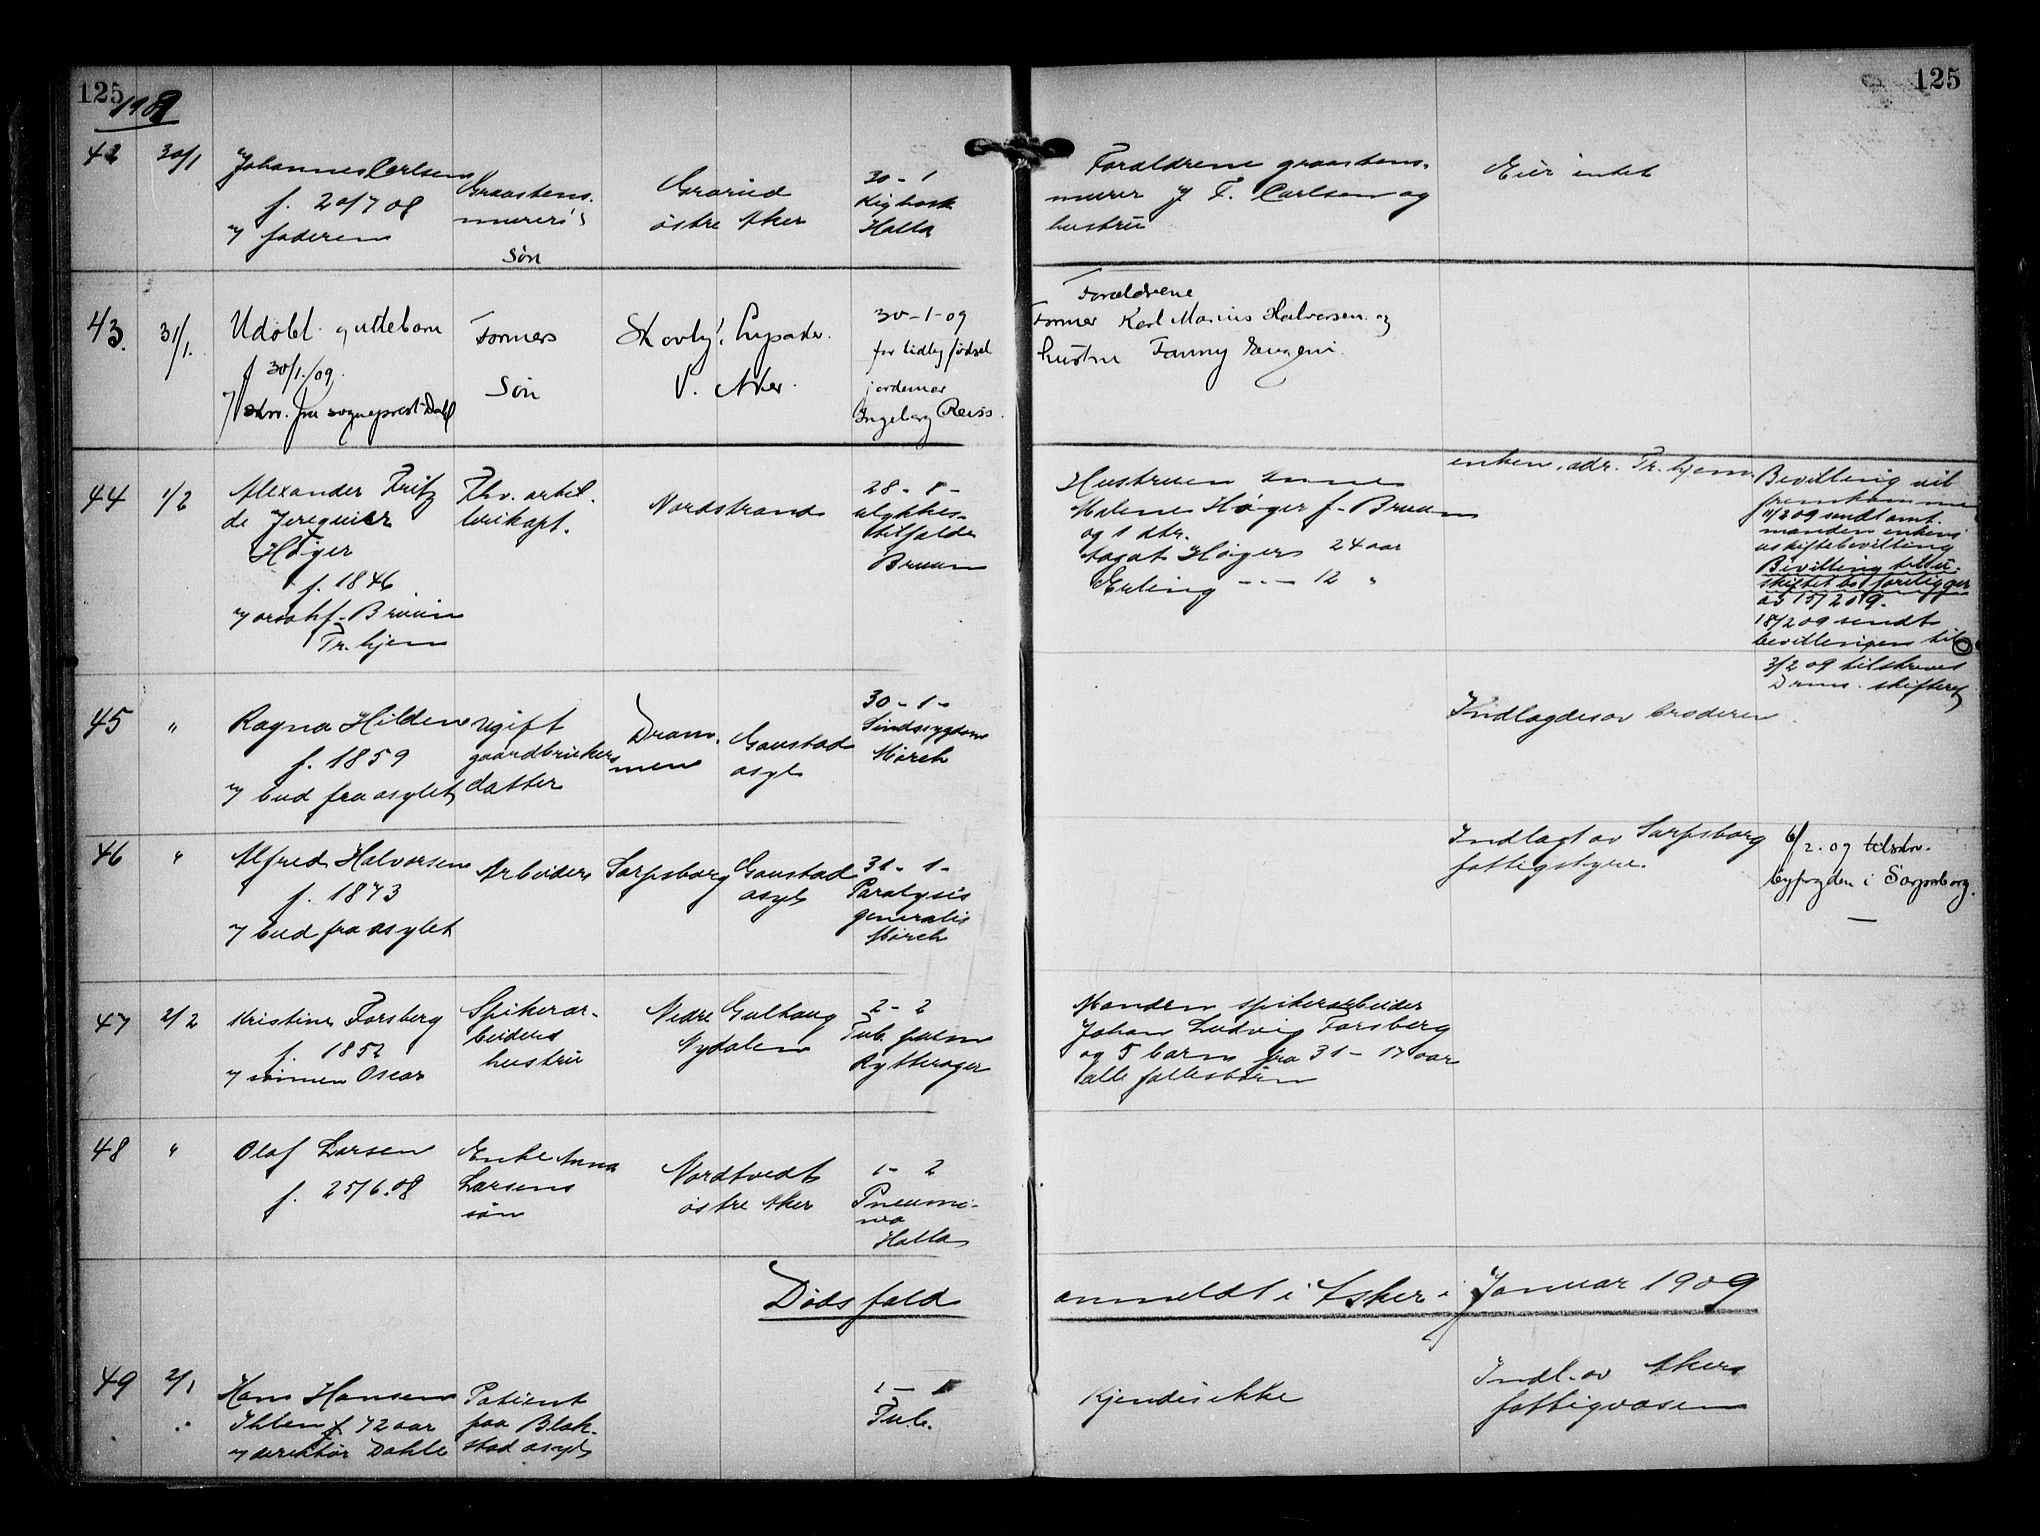 125
125
1909
42
30/1
Johannes Carlsen
f. 20/7 08
v/ faderen
Graastens-
murers
søn
Grorud
østre Aker
30 - 1
Kighoste
Halla
Forældrene graastens-
murer J F. Carlsen og
hustru
Eier intet
43.
31/1.
Udøbt guttebarn
f 30/1/09.
v/ skr. fra sogneprest Dahl
Formers
Søn
Skovly, Lysaker.
V. Aker.
30-1-09
for tidlig fødsel
jordemor
Ingeborg Reiss.
Forældrene
Former Karl Marius Halvorsen og
hustru Fanny Eugeni.
44
1/2
Alexander Fritz
de Jerequier
Høyer
f. 1846
v/ Bruun
Tr. hjem
Fhv. artil-
lerikapt.
Nordstrand
28 - 1 -
ulykkes-
tilfælde
Bruun
Hustruen Anne
Malene Høyer f. Bruun
og 1 dtr.
Aagot Høyer 24 aar
Erling -"- 12 "
enken, adr. Tr. hjem.
Bevilling vil
fremkomme
11/2 09 sendt amt-
manden enkens
uskiftebevilling
Bevilling til u-
skiftet bo foreligger
av 15/2 09.
18/2 09 sendt
bevillingen til
45
"
Ragna Hilden
f. 1859
v/ bud fra asylet
Ugift
gaardbrukers
datter
Dram-
men
Gaustad
asyl
30 - 1 -
Sindssygdom
Mørch
Indlagdes av broderen
3/2 09 tilskrevet
Dram. skifteret
46
"
Alfred Halvorsen
f. 1873
v/ bud fra asylet
Arbeider
Sarpsborg
Gaustad
asyl
31 - 1 -
Paralysis
generalis
Mørch
Indlagt av Sarpsborg
fattigstyre.
6/2. 09 tilskr.
byfogden i Sarpsborg.
47
2/2
Kristine Forsberg
f. 1852
v/ sønnen Oscar
Spikerar-
beiders
hustru
Nedre Gulhaug
Nydalen
2 - 2
Tub. pulm
Rytterager
Manden spikerarbeider
Johan Ludvig Forsberg
og 5 barn fra 31 - 17 aar
alle fællesbørn
48
"
Olaf Larsen
f. 25/6.08
Enke Anna
Larsens
søn
Nordtvedt
østre Aker
1 - 2
Pneumo-
nia
Halla
Dødsfald
anmeldt i Asker i Januar 1909
49
2/1
Hans Hansen
Ihlen f 72 aar
v/ direktør Dahle
Patient
paa Blak-
stad asyl
1 - 1
Tub.
Kjendes ikke
Indl. av Akers
fattigvæsen